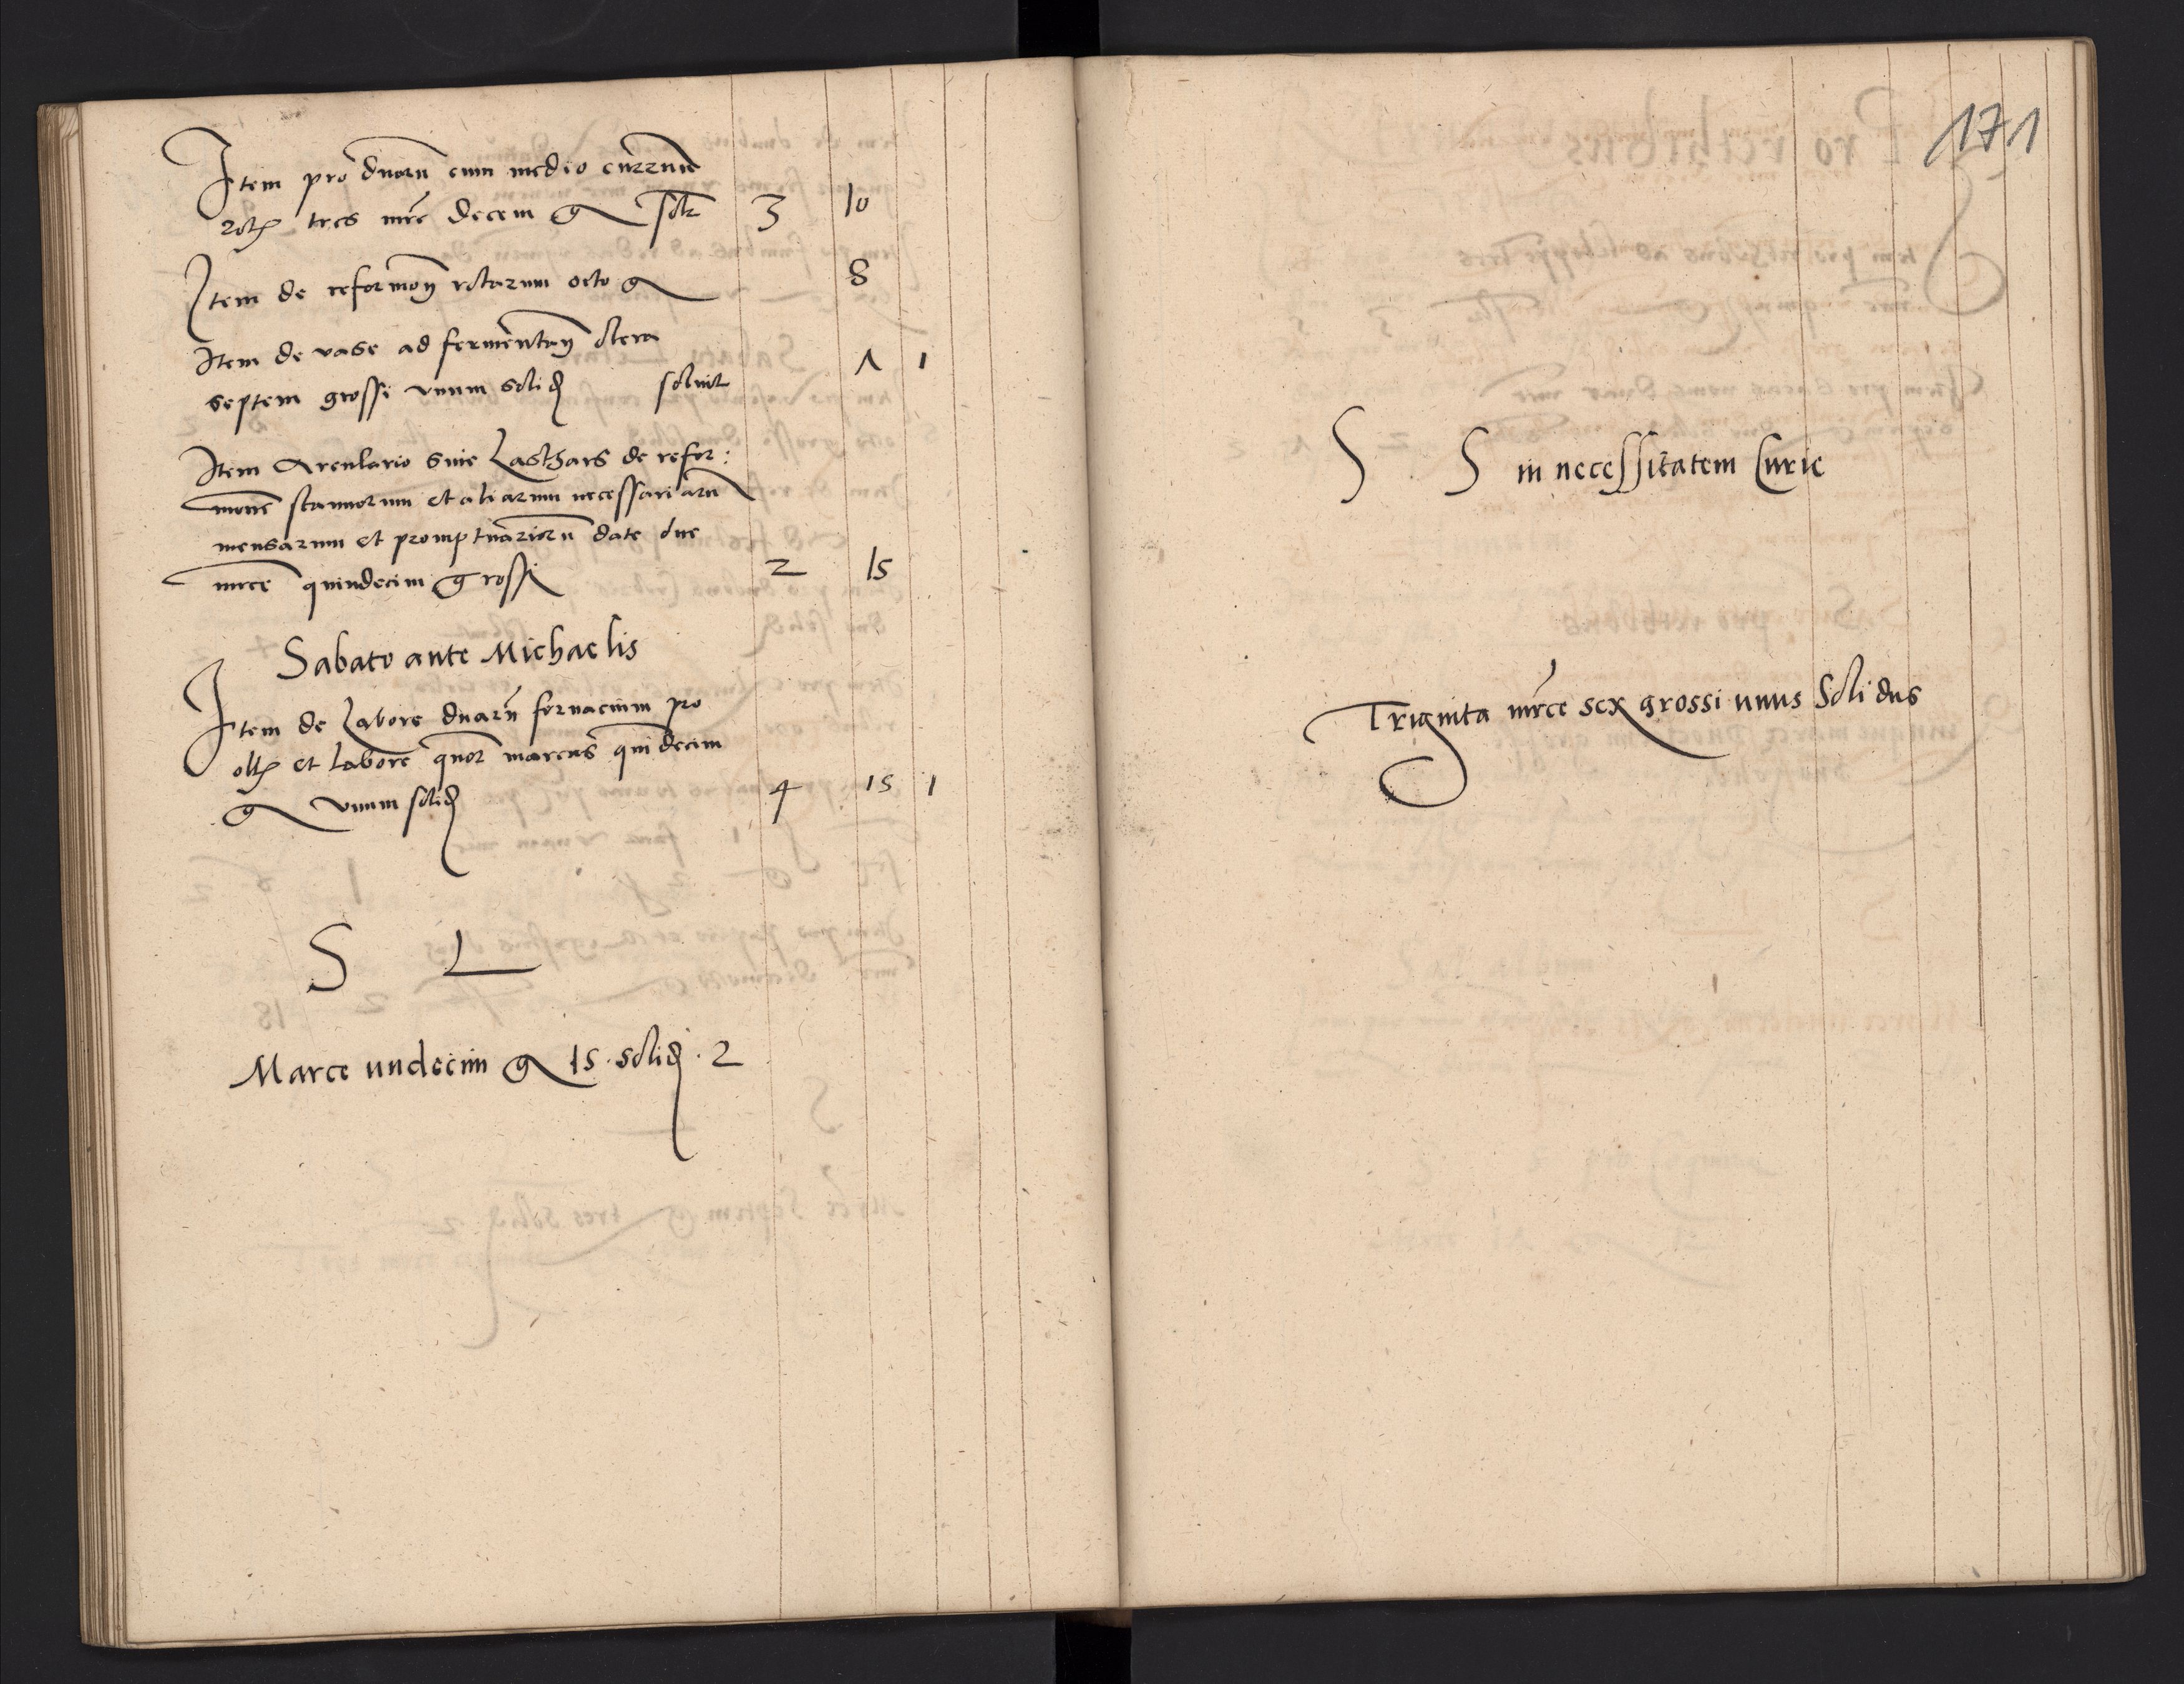 Item pro duorū cum medio curruū
rot tres mrc decem g solt 3 10
Item de reformoy rotarum octo g 8
Item de vase ad fermentay
septem grossi vnum solid soluit Λ 1
Item Arculario suie Lasthars de refor:
mone scamnorum et aliarum necessariarū
mensarum et promptuariorū date due
mrce quindecim grossi 2 15
Sabato ante Michaelis
Item de Labore duarū fornacium pro
et Labore quor marcas quidecim
g vnum solid 4 15 1
S L
Marce undecim g 15 . solid . 2
171
S S in necessitatem Curie
Triginta mrce sex grossi unus Solidus